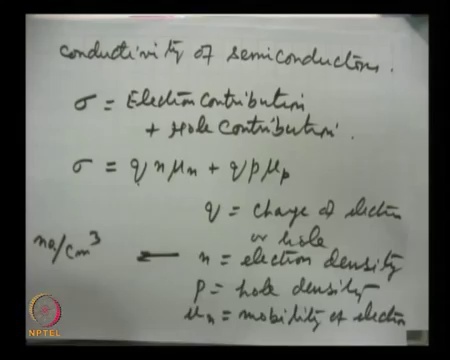 conductivity of semiconductors.
σ = Electron contribution
+ Hole contribution.
σ = q n μn + q p μp
q = charge of electron
or hole
no/cm³ ← n = electron density
p = hole density
μn = mobility of electron
NPTEL